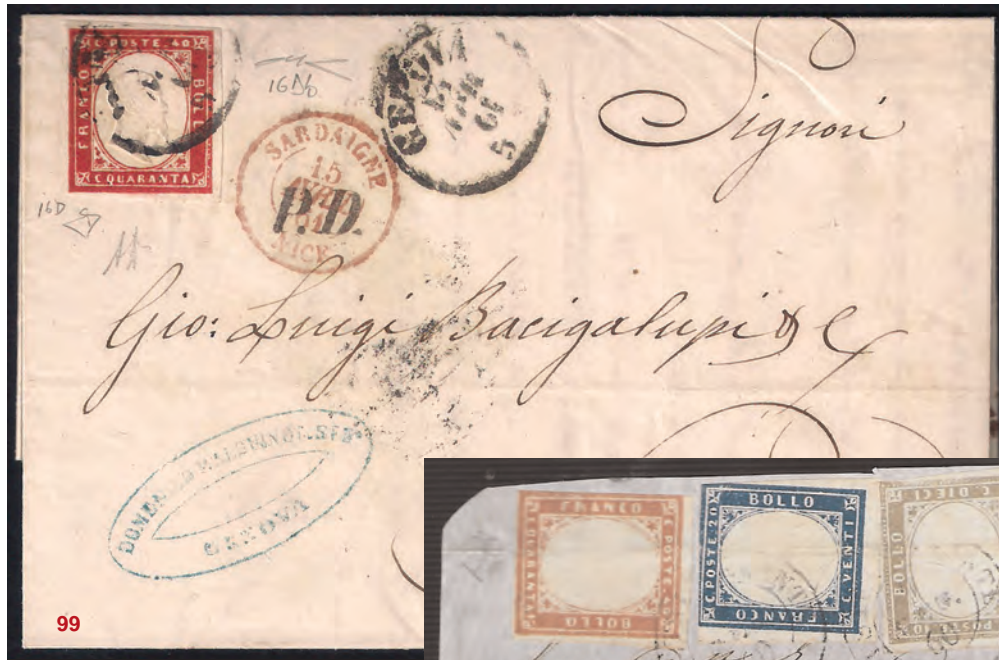 C. POSTE. 40
FRANCO
BOLLO
C. QUARANTA
16Db
GENOVA
15
61
5
Signori
SARDAIGNE
15
P.D.
NICE
16D
Gio: Luigi Bacigalupi & C
GENOVA
99
FRANCO
C. QUARANTA
C. POSTE. 40
BOLLO
BOLLO
C. POSTE. 20
C. VENTI
FRANCO
C. DIECI
BOLLO
POSTE. 10